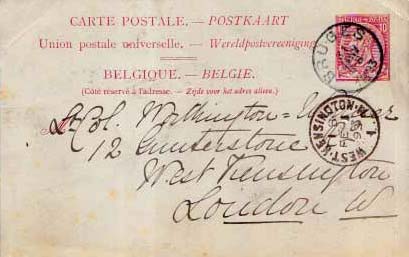 CARTE POSTALE. — POSTKAART
Union postale universelle. — Wereldpostvereeniging
BELGIQUE. — BELGIE.
(Côté réservé à l'adresse. — Zijde voor het adres alleen.)
10
BRUGES
WEST-KENSINGTON-W.
Worthington
12 Gunterstone
West Kensington
London W